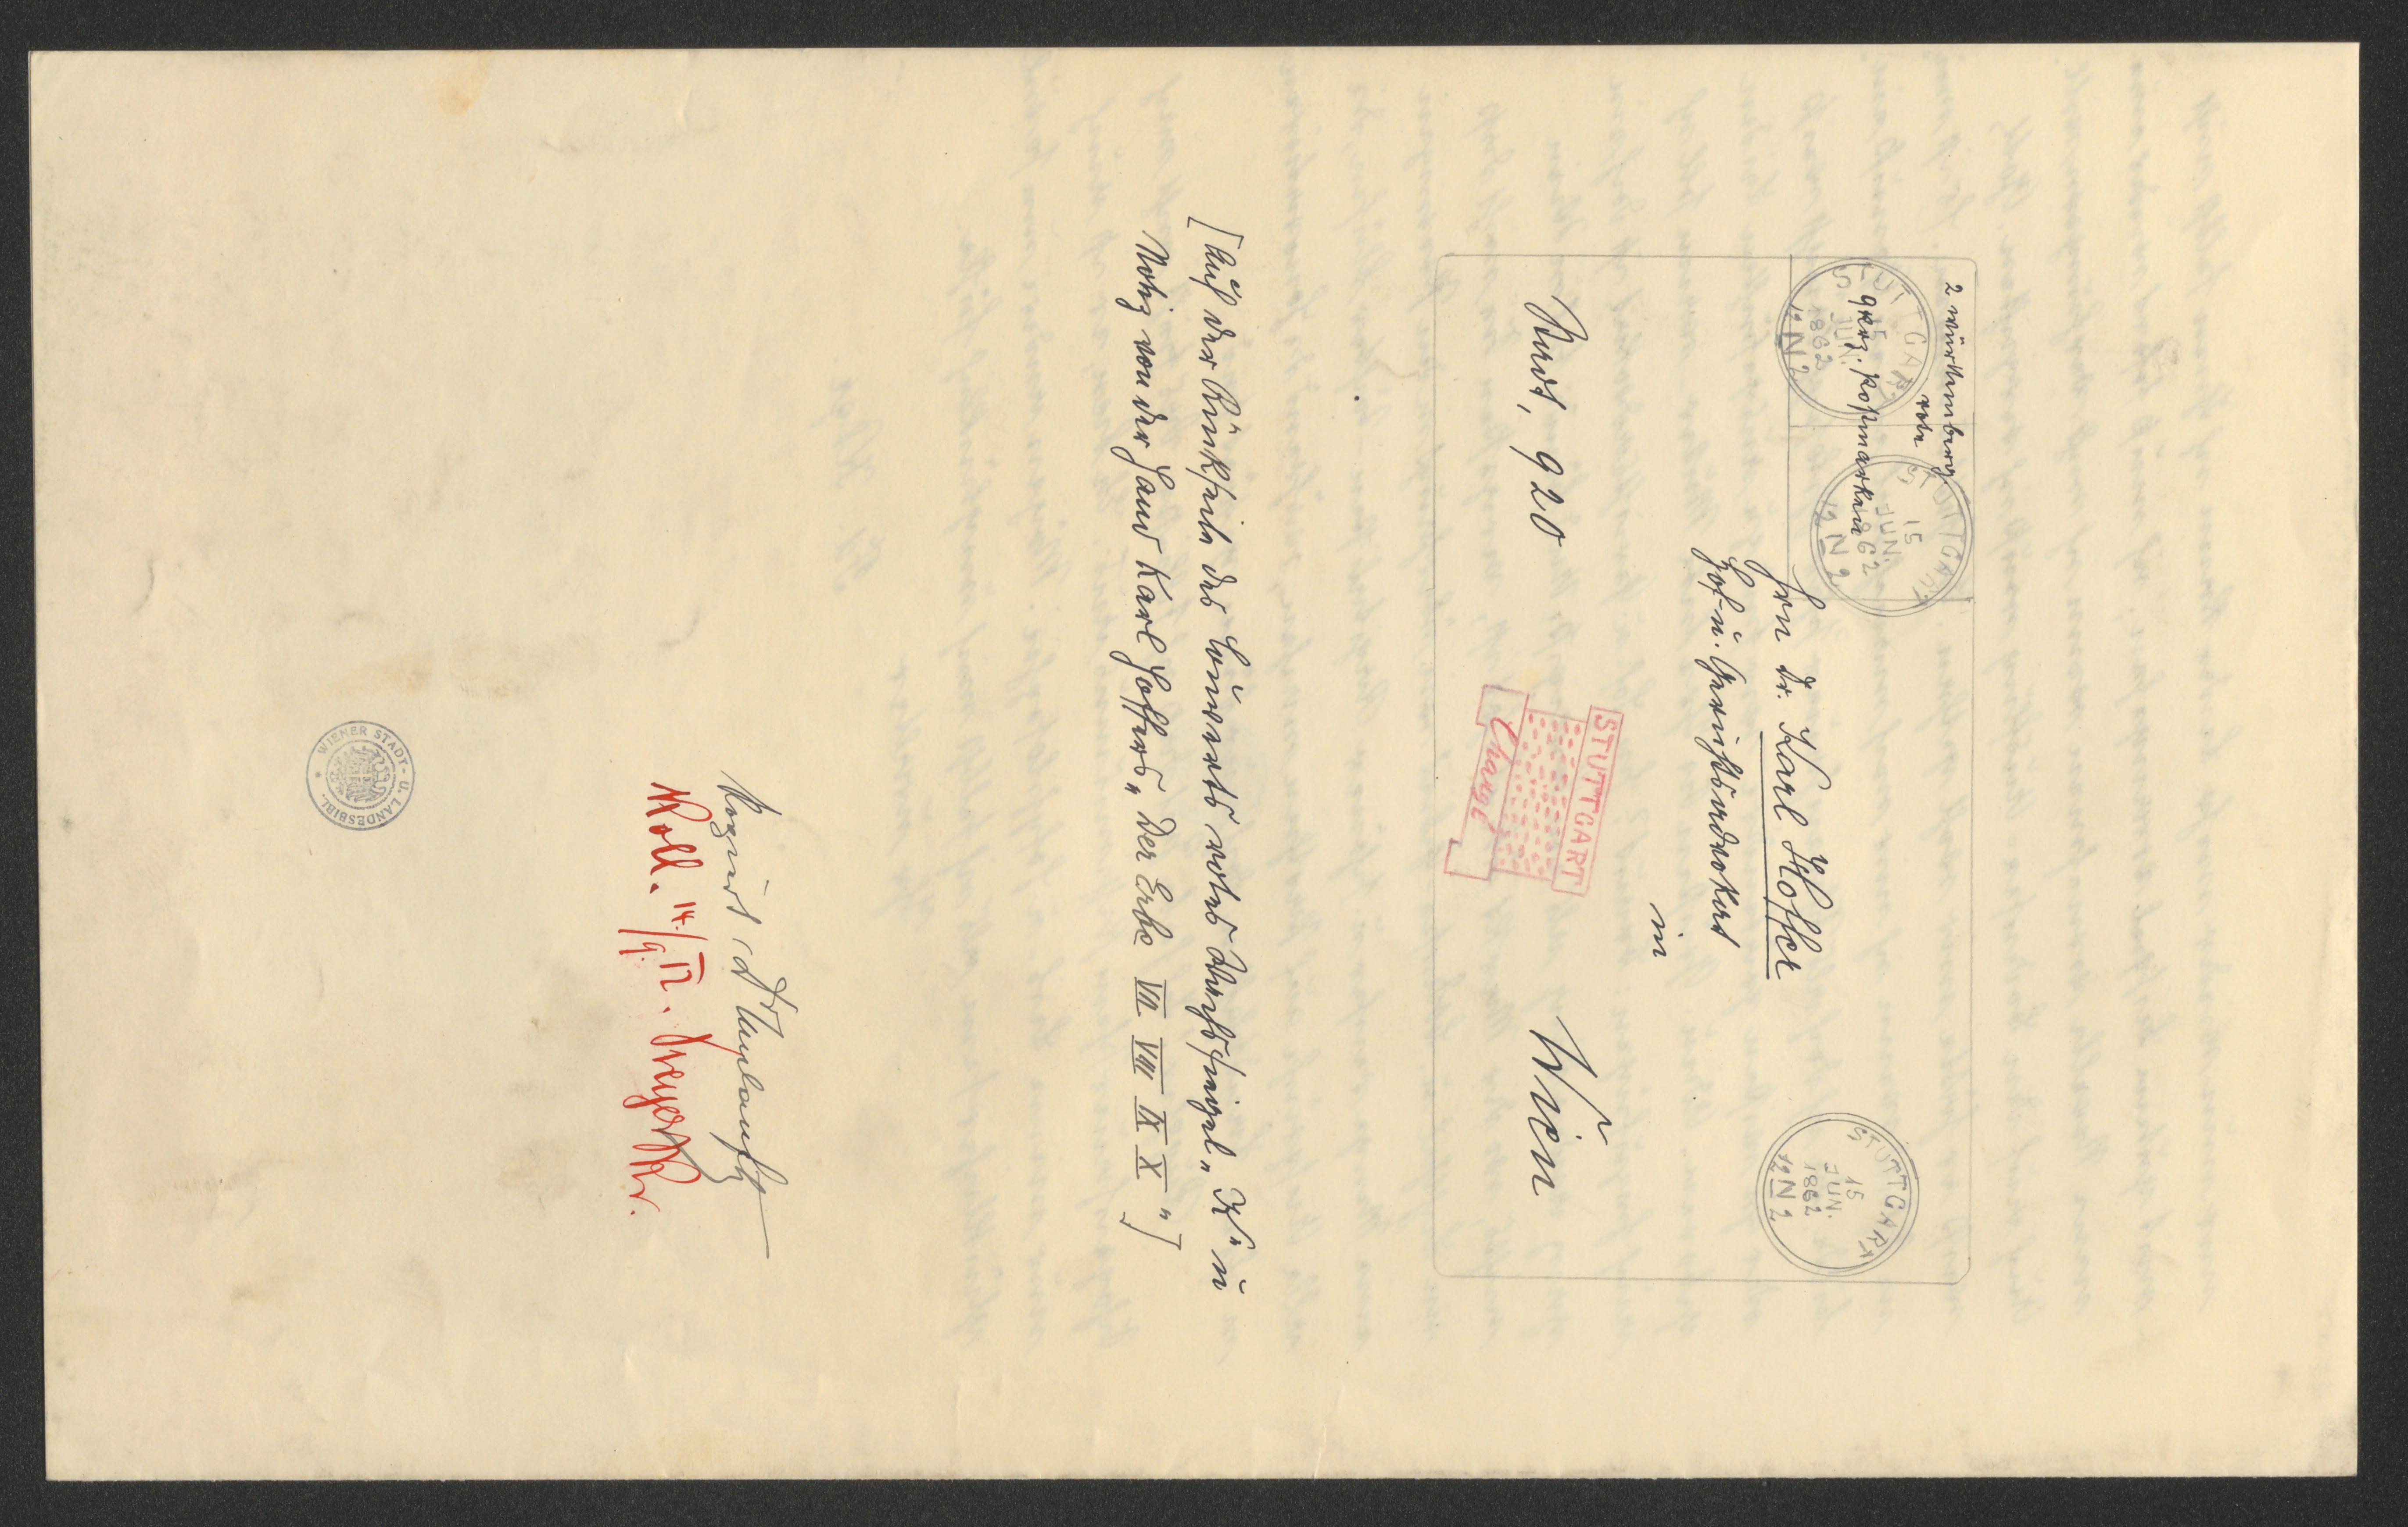 2 württemberg.
rote
9 krz. Postmarken
STUTTGART
15
JUN.
1862
12 N 2
STUTTGART
15
JUN.
1862
12 N 2
STUTTGART
15
JUN.
1862
12 N 2
Hrn Dr. Karl Hoffer
Hof- u. Gerichtsadvokat
in
Wien
920
STUTTGART
Chargé
[Auf der Rückseite des Couverts rotes Wachssiegel „K“ u
Notiz von der Hand Karl Hoffers „Der Erbe VII VIII IX X“]
Koll. 14./9. 12.
WIENER STADT- U. LANDESBIBL.